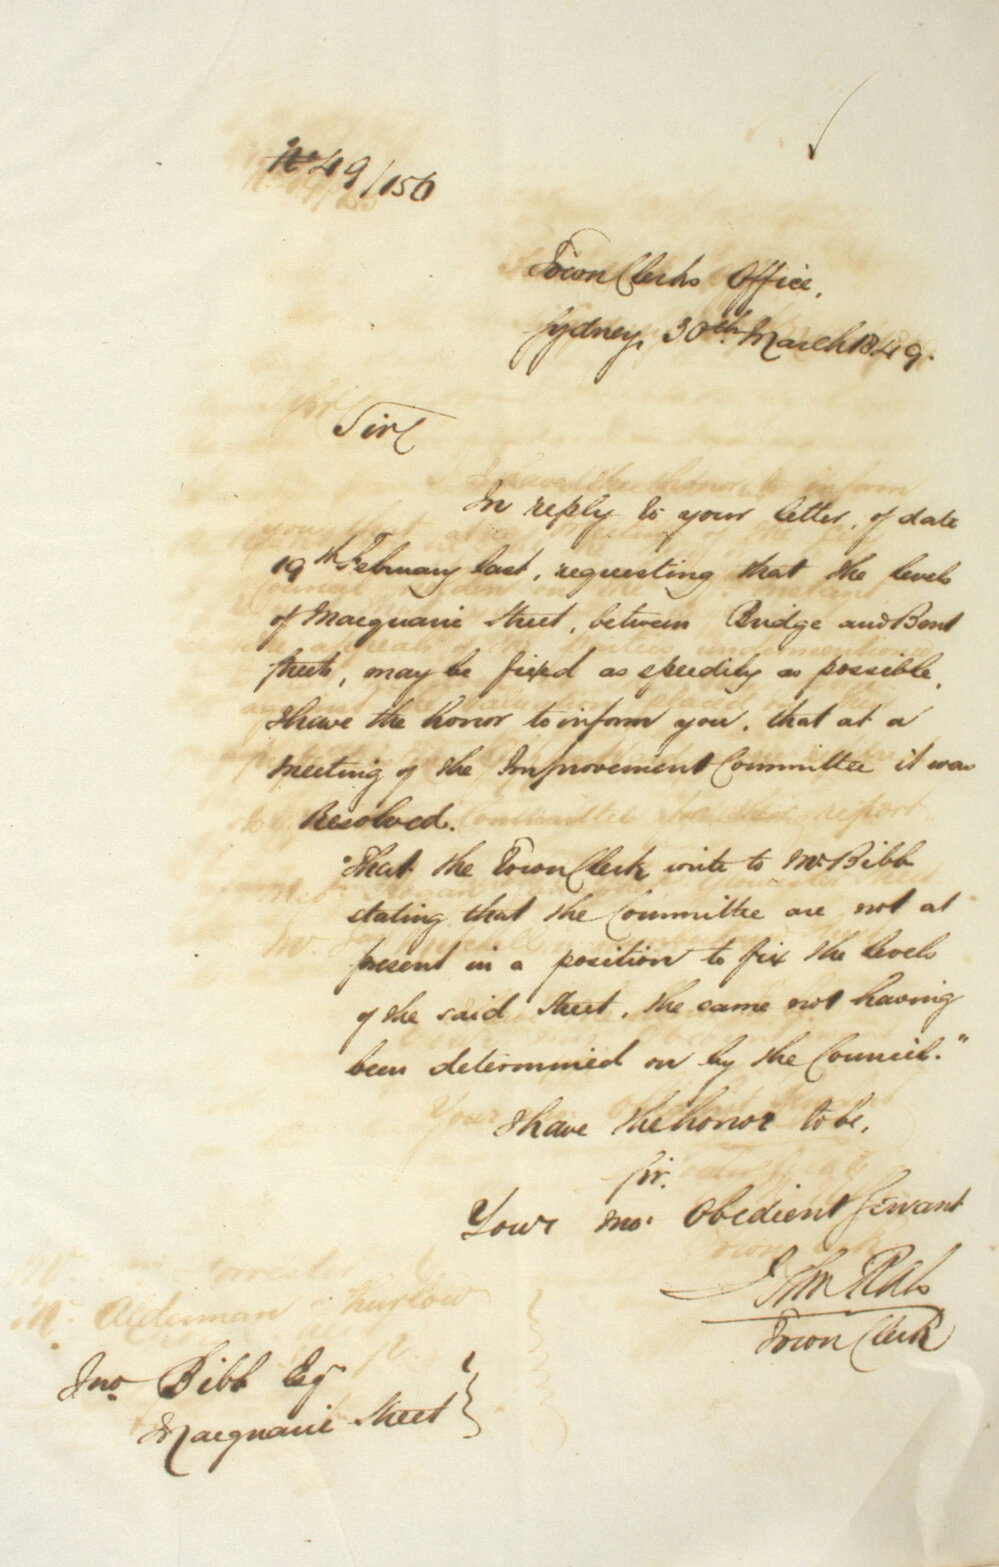 No 49/156
Town Clerks Office,
Sydney, 30th March 1849.
Sir
In reply to your letter, of date
19th February last, requesting that the levels
of Macquarie Street, between Bridge and Bent
Streets, may be fixed as speedily as possible,
I have the honor to inform you, that at a
Meeting of the Improvement Committee it was
Resolved.
"That the Town Clerk write to Mr Bibb
stating that the Committee are not at
present in a position to fix the levels
of the said Street, the same not having
been determined on by the Council."
I have the honor to be,
Sir.
Your mo: Obedient Servant
John
Town Clerk
Jno. Bibb Esq
Macquarie Street